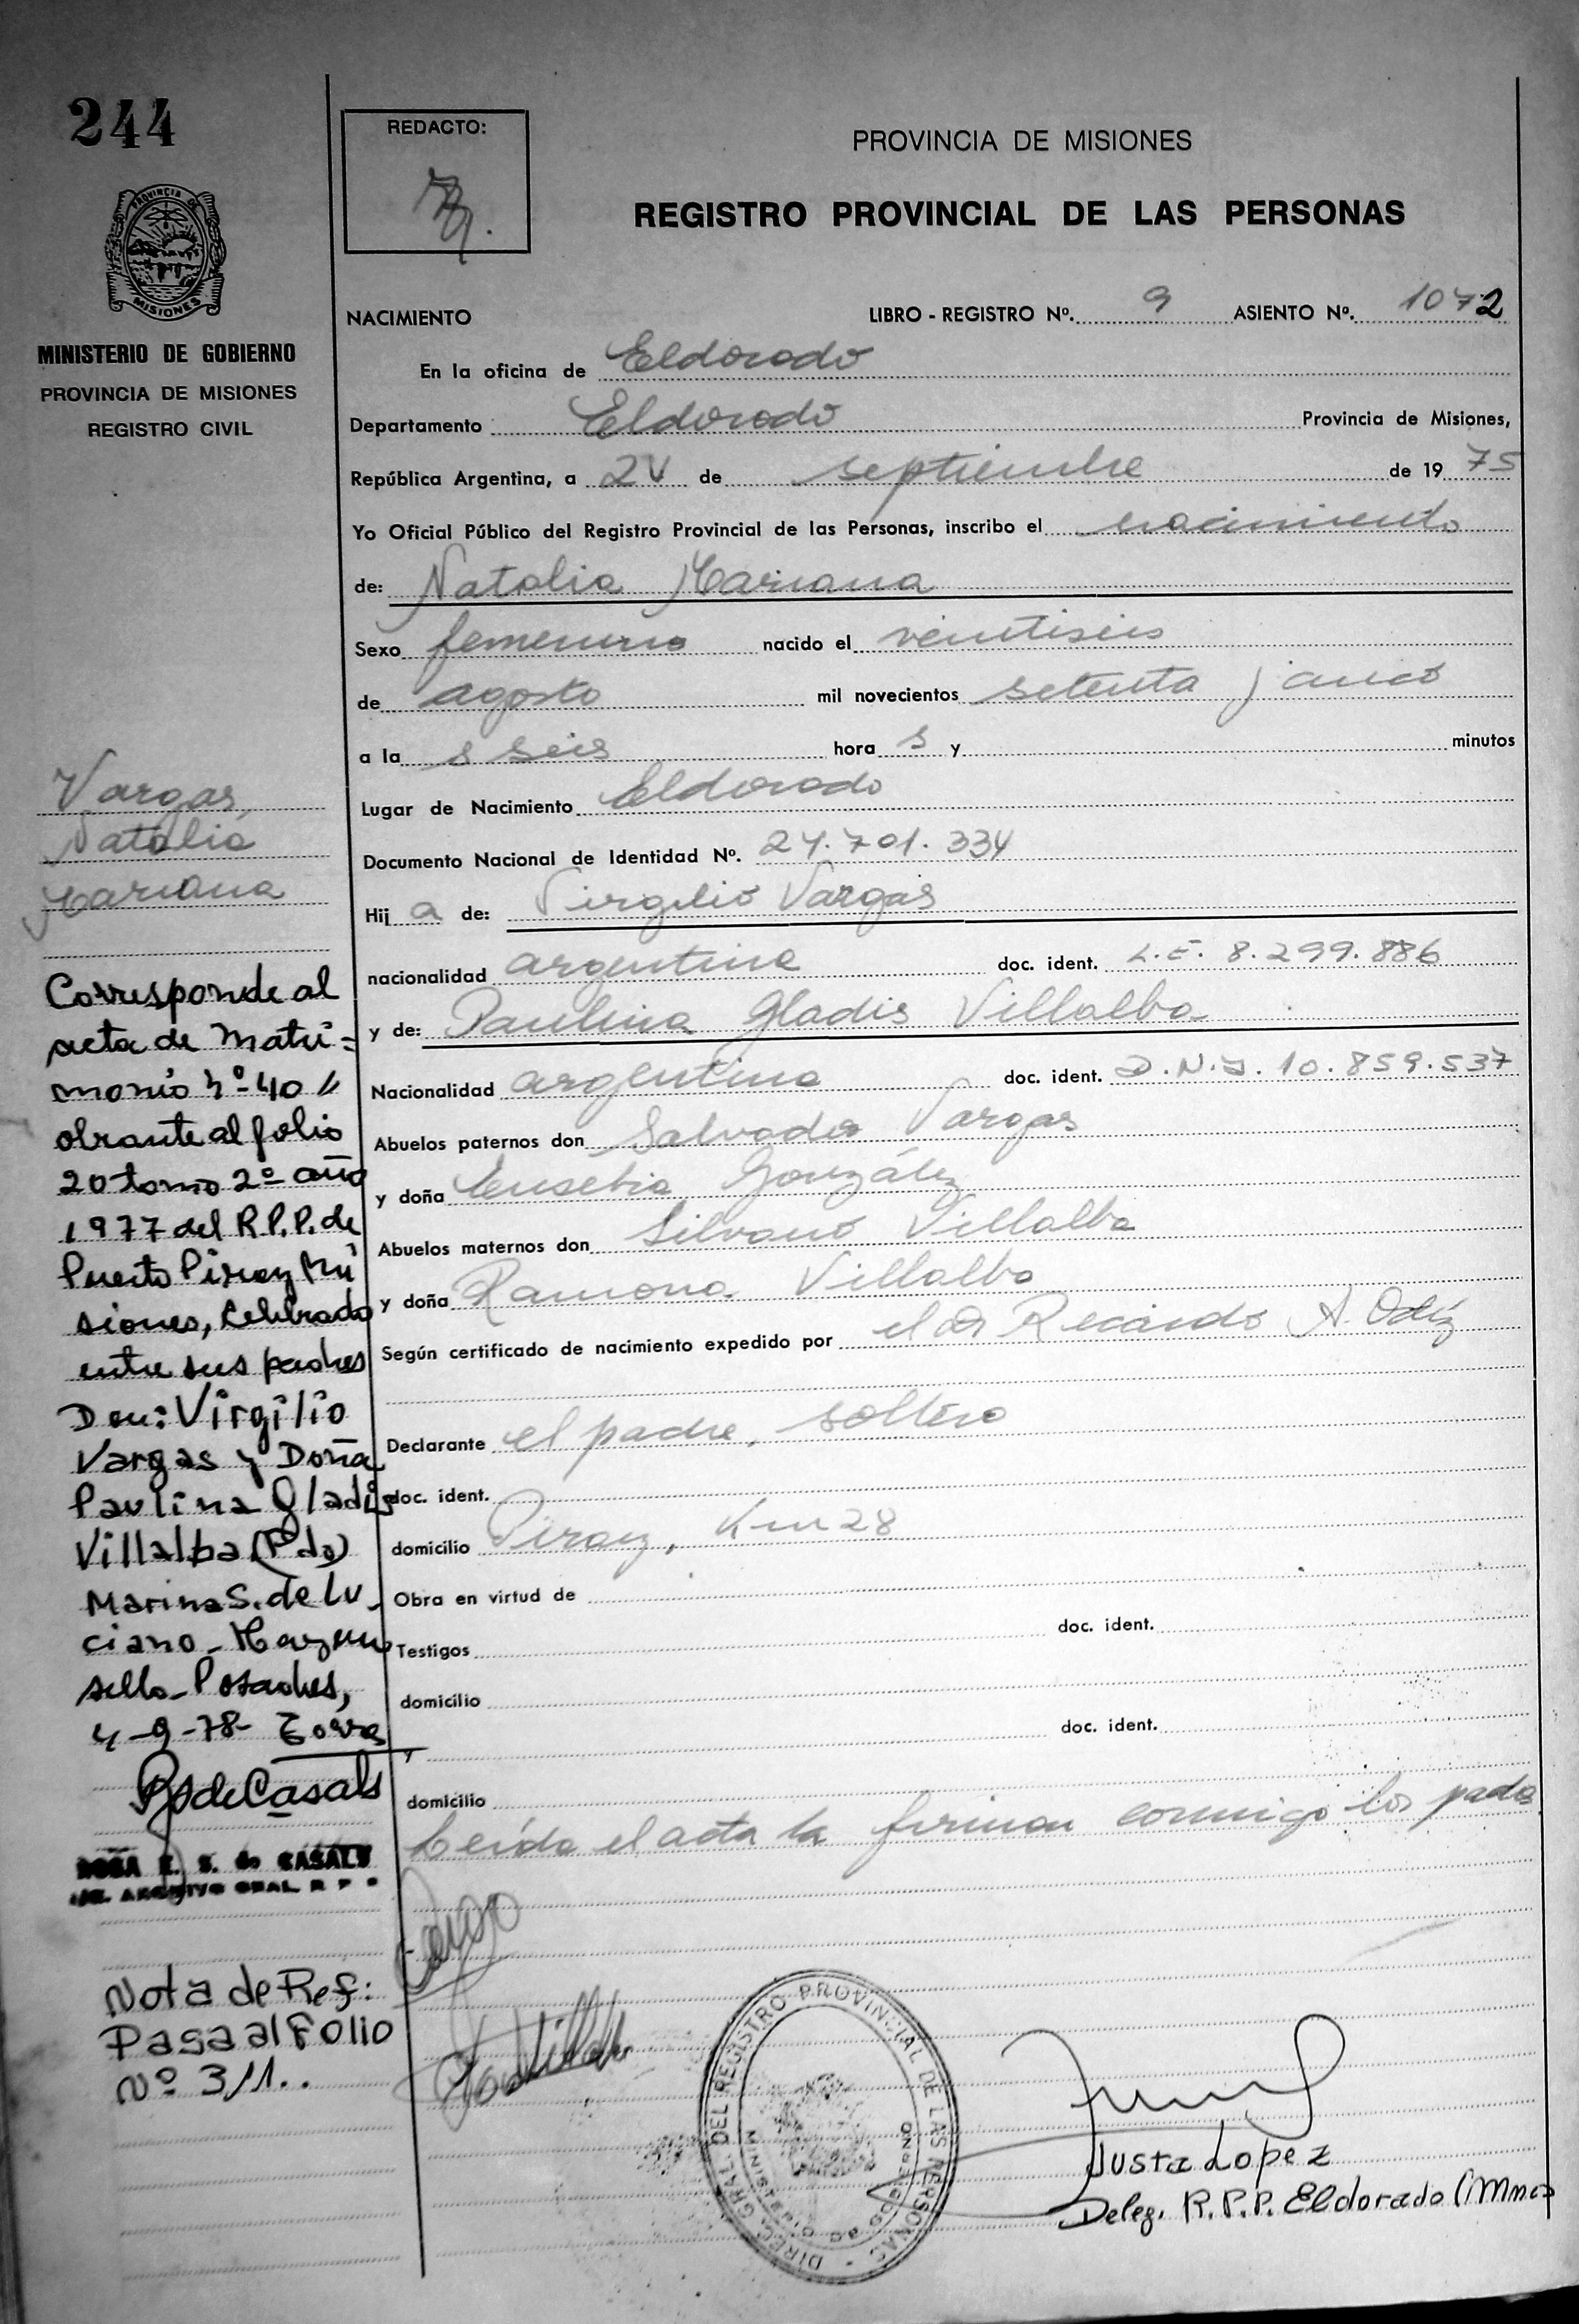 244
PROVINCIA DE
MISIONES
MINISTERIO DE GOBIERNO
PROVINCIA DE MISIONES
REGISTRO CIVIL
REDACTO:
PROVINCIA DE MISIONES
REGISTRO PROVINCIAL DE LAS PERSONAS
NACIMIENTO LIBRO - REGISTRO Nº. 9 ASIENTO Nº. 1072
En la oficina de Eldorado
Departamento Eldorado Provincia de Misiones,
República Argentina, a 24 de septiembre de 19 75
Yo Oficial Público del Registro Provincial de las Personas, inscribo el nacimiento
de: Natalia Mariana
Sexo femenino nacido el veintiseis
de agosto mil novecientos setenta y cinco
a la s seis hora s y minutos
Lugar de Nacimiento Eldorado
Documento Nacional de Identidad Nº. 24.701.334
Hij a de: Virgilio Vargas
nacionalidad argentina doc. ident. L.E. 8.299.886
y de: Paulina Gladis Villalba
Nacionalidad argentina doc. ident. D.N.I. 10.859.537
Abuelos paternos don Salvador Vargas
y doña Eusebia González
Abuelos maternos don Silvano Villalba
y doña Ramona Villalba
Según certificado de nacimiento expedido por el Dr Ricardo A.
Declarante el padre, soltero
doc. ident.
domicilio Piray, Km 28
Obra en virtud de
Testigos doc. ident.
domicilio
y doc. ident.
domicilio
Leída el acta la firman conmigo los padres
Justa Lopez
Deleg. R.P.P. Eldorado (Mnes)
DIREC. GRAL. DEL REGISTRO PROVINCIAL DE LAS PERSONAS
MINISTERIO DE GOBIERNO
Vargas,
Natalia
Mariana
Corresponde al
acta de Matri=
monio Nº 40
obrante al folio
20 tomo 2º año
1977 del R.P.P. de
Puerto Piray Mi
siones, Celebrado
entre sus padres
Don: Virgilio
Vargas y Doña
Paulina Gladis
Villalba (Fdo)
Marina S. de Lu
ciano - Hay un
sello - Posadas,
4-9-78-
R S de Casals
ROSA E. S. de CASALS
ARCHIVO GRAL R P P
Nota de Ref:
Pasa al Folio
Nº 311..